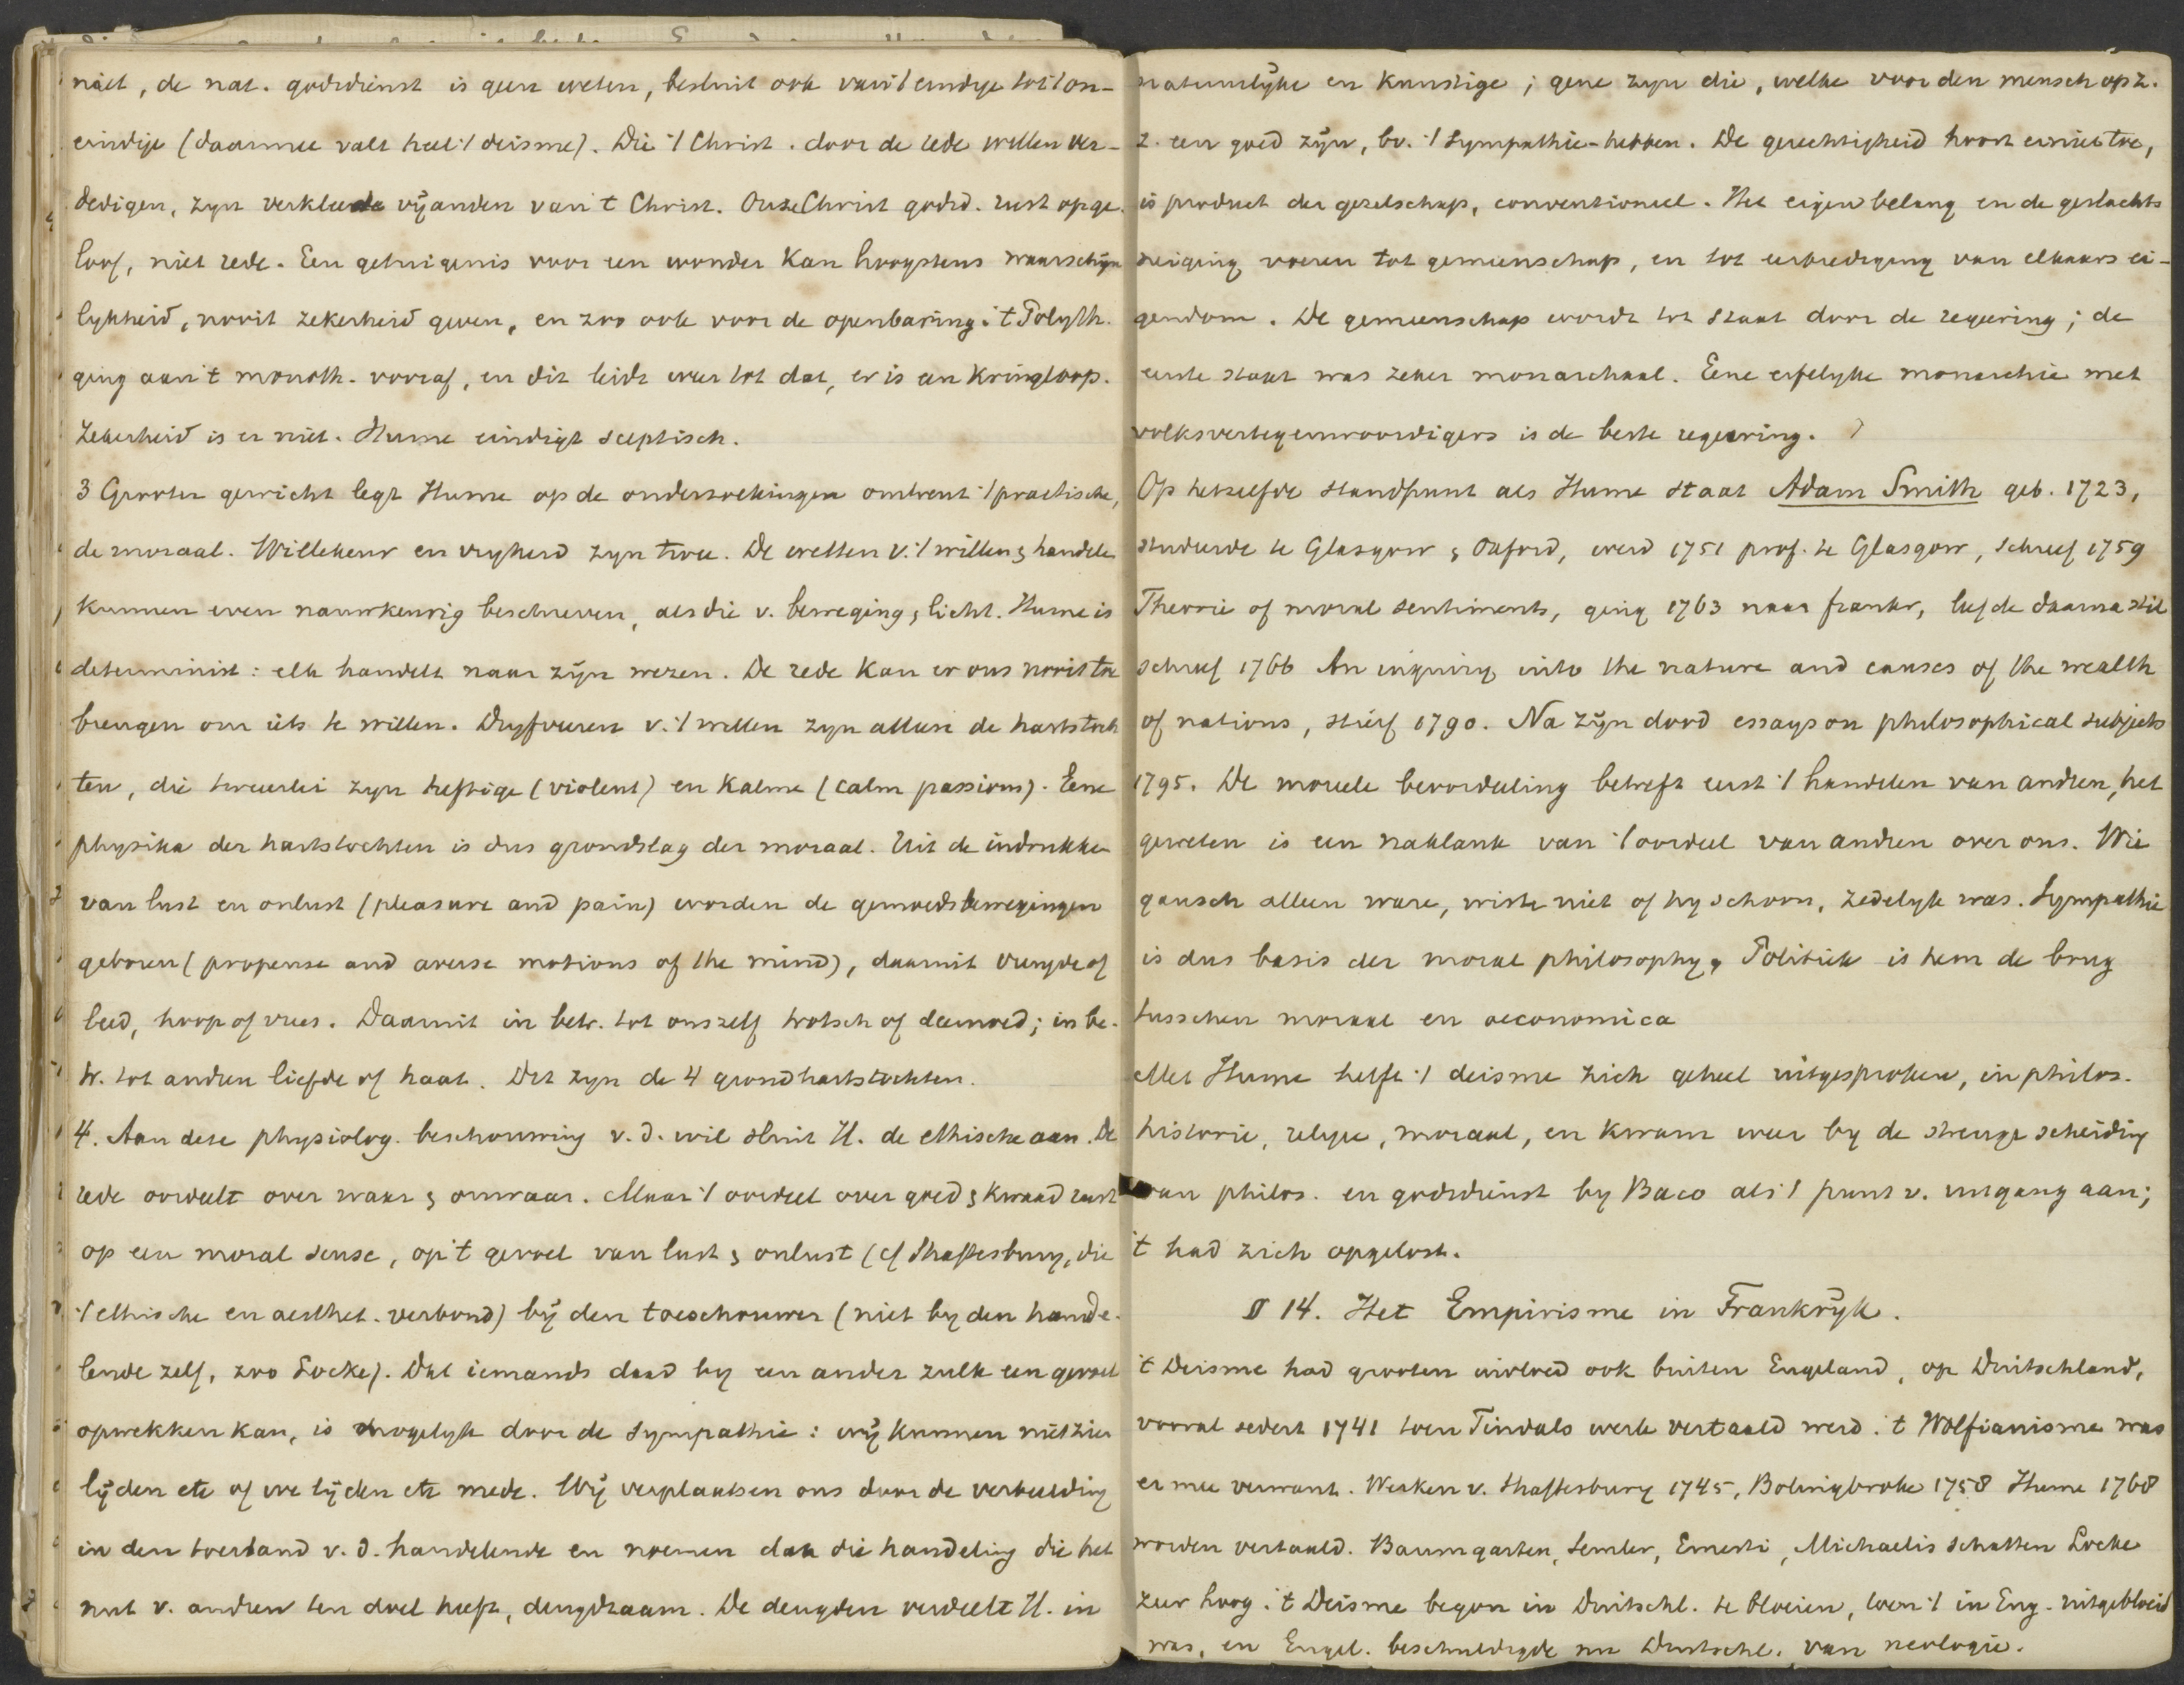 niet, de nat. godsdienst is geen weten, besluit ook van 't eindige tot 't on-
eindige (daarmee valt heel 't deisme). Die 't Christ. door de rede willen ver-
dedigen, zyn verkleede vijanden van 't Christ. Onze Christ godsd. rust op ge-
loof, niet rede. Een getuigenis voor een wonder kan hoogstens waarschijn
lykheid, nooit zekerheid geven, en zoo ook voor de openbaring. 't Polyth.
ging aan 't monoth. vooraf, en dit leidt weer tot dat, er is een kringloop.
Zekerheid is er niet. Hume eindigt sceptisch.
3 Grooter gewicht legt Hume op de onderzoekingen omtrent 't practische,
de moraal. Willekeur en vryheid zyn twee. De wetten v. 't willen & handelen
kunnen even nauwkeurig beschreven, als die v. beweging & licht. Hume is
determinist: elk handelt naar zijn wezen. De rede kan er ons nooit toe
brengen om iets te willen. Dryfveeren v. 't willen zyn alleen de hartstoch
ten, die tweeerlei zyn heftige (violent) en kalme (calm passions). Eene
physika der hartstochten is dus grondslag der moraal. Uit de indrukken
van lust en onlust (pleasure and pain) worden de gemoedsbewegingen
geboren (propense and averse motions of the mind), daaruit vreugde of
leed, hoop of vrees. Daaruit in betr. tot onszelf trotsch of deemoed; in be-
tr. tot andren liefde of haat. Dit zyn de 4 grondhartstochten.
4. Aan deze physiolog. beschouwing v. d. wil sluit H. de ethische aan. De
rede oordeelt over waar & onwaar. Maar 't oordeel over goed & kwaad rust
op een moral sense, op 't gevoel van lust & onlust (cf Shaftesbury, die
't ethische en aesthet. verbond) bij den toeschouwer (niet by den hande-
lende zelf, zoo Locke). Dat iemands daad by een ander zulk een gevoel
opwekken kan, is mogelyk door de sympathie: wij kunnen niet zien
lijden etc of we lijden etc mede. Wij verplaatsen ons door de verbeelding
in den toestand v. d. handelende en noemen dan die handeling die het
nut v. andren ten doel heeft, deugdzaam. De deugden verdeelt H. in
natuurlyke en kunstige; gene zyn die, welke voor den mensch op z.
z. een goed zijn, bv. 't sympathie-hebben. De gerechtigheid hoort er niet toe,
is product der gezelschap, conventioneel. Het eigenbelang en de geslachts
neiging voeren tot gemeenschap, en tot eerbiediging van elkaars ei-
gendom. De gemeenschap wordt tot staat door de regeering; de
eerste staat was zeker monarchaal. Eene erfelyke monarchie met
volksvertegenwoordigers is de beste regeering.
Op hetzelfde standpunt als Hume staat Adam Smith geb. 1723,
studeerde te Glasgow & Oxford, werd 1751 prof. te Glasgow, schreef 1759
Theorie of moral sentiments, ging 1763 naar frankr, leefde daarna stil
schreef 1766 An inquiry into the nature and causes of the wealth
of nations, stierf 1790. Na zijn dood essays on philosophical subjects
1795. De moreele beoordeeling betreft eerst 't handelen van andren, het
geweten is een naklank van 't oordeel van andren over ons. Wie
gansch alleen ware, wiste niet of hy schoon, zedelyk was. Sympathie
is dus basis der moral philosophy, Politiek is hem de brug
tusschen moraal en oeconomica
Met Hume heeft 't deisme zich geheel uitgesproken, in philos.
historie, religie, moraal, en kwam weer by de strenge scheiding
van philos. en godsdienst by Baco als 't punt v. uitgang aan;
't had zich opgelost.
§ 14. Het Empirisme in Frankrijk.
't Deisme had grooten invloed ook buiten Engeland, op Duitschland,
vooral sedert 1741 toen Tindals werk vertaald werd. 't Wolfianisme was
er mee verwant. Werken v. Shaftesbury 1745, Bolingbroke 1758 Hume 1768
worden vertaald. Baumgarten, Semler, Ernesti, Michaelis schatten Locke
zeer hoog. 't Deisme begon in Duitschl. te bloeien, toen 't in Eng. uitgebloeid
was, en Engel. beschuldigde nu Duitschl. van neologie.